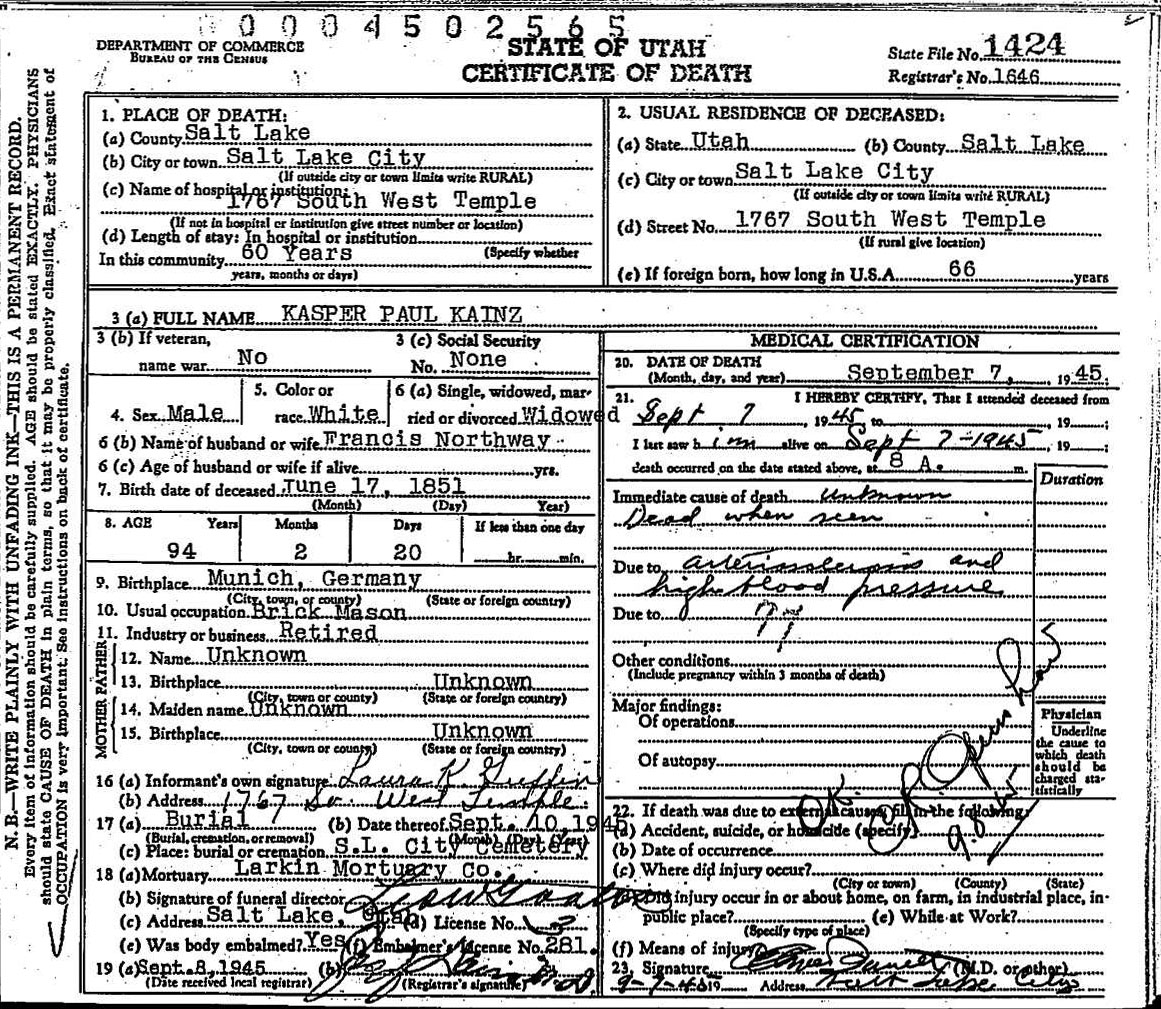 0004502565
DEPARTMENT OF COMMERCE
BUREAU OF THE CENSUS
STATE OF UTAH
CERTIFICATE OF DEATH
State File No. 1424
Registrar's No. 1646
N. B.—WRITE PLAINLY WITH UNFADING INK—THIS IS A PERMANENT RECORD.
Every item of information should be carefully supplied. AGE should be stated EXACTLY. PHYSICIANS
should state CAUSE OF DEATH in plain terms, so that it may be properly classified. Exact statement of
OCCUPATION is very important. See instructions on back of certificate.
1. PLACE OF DEATH:
(a) County Salt Lake
(b) City or town Salt Lake City
(If outside city or town limits write RURAL)
(c) Name of hospital or institution:
1767 South West Temple
(If not in hospital or institution give street number or location)
(d) Length of stay: In hospital or institution
In this community 60 Years (Specify whether
years, months or days)
2. USUAL RESIDENCE OF DECEASED:
(a) State Utah (b) County Salt Lake
(c) City or town Salt Lake City
(If outside city or town limits write RURAL)
(d) Street No. 1767 South West Temple
(If rural give location)
(e) If foreign born, how long in U.S.A. 66 years
3 (a) FULL NAME KASPER PAUL KAINZ
3 (b) If veteran,
name war No
3 (c) Social Security
No. None
4. Sex Male
5. Color or
race White
6 (a) Single, widowed, mar-
ried or divorced Widowed
6 (b) Name of husband or wife Francis Northway
6 (c) Age of husband or wife if alive yrs.
7. Birth date of deceased June 17, 1851
(Month) (Day) Year)
8. AGE Years Months Days If less than one day
94 2 20 hr. min.
9. Birthplace Munich, Germany
(City, town, or county) (State or foreign country)
10. Usual occupation Brick Mason
11. Industry or business Retired
FATHER
12. Name Unknown
13. Birthplace Unknown
(City, town or county) (State or foreign country)
MOTHER
14. Maiden name Unknown
15. Birthplace Unknown
(City, town or county) (State or foreign country)
16 (a) Informant's own signature Laura K Griffin
(b) Address 1767 So. West Temple
17 (a) Burial (b) Date thereof Sept. 10, 1945
(Burial, cremation, or removal) (Month) (Day) (Year)
(c) Place: burial or cremation S.L. City Cemetery
18 (a) Mortuary Larkin Mortuary Co.
(b) Signature of funeral director
(c) Address Salt Lake, Utah (d) License No. 3
(e) Was body embalmed? Yes (f) Embalmer's License No. 281.
19 (a) Sept. 8, 1945 (b)
(Date received local registrar) (Registrar's signature)
MEDICAL CERTIFICATION
20. DATE OF DEATH
(Month, day, and year) September 7, 19 45
21. I HEREBY CERTIFY, That I attended deceased from
Sept 7, 1945 to , 19 ;
I last saw him alive on Sept 7-1945, 19 ;
death occurred on the date stated above, at 8 A. m.
Duration
Immediate cause of death unknown
Dead when seen
Due to arteriosclerosis and
high blood pressure
Due to
97
Other conditions
(Include pregnancy within 3 months of death)
Major findings:
Of operations
Of autopsy
Physician
Underline
the cause to
which death
should be
charged sta-
tistically
O.K.
9.8.45
22. If death was due to external causes, fill in the following:
(a) Accident, suicide, or homicide (specify)
(b) Date of occurrence
(c) Where did injury occur?
(City or town) (County) (State)
Did injury occur in or about home, on farm, in industrial place, in
public place? (e) While at Work?
(Specify type of place)
(f) Means of injury
23. Signature (M.D. or other)
9-7-45 19 Address Salt Lake City